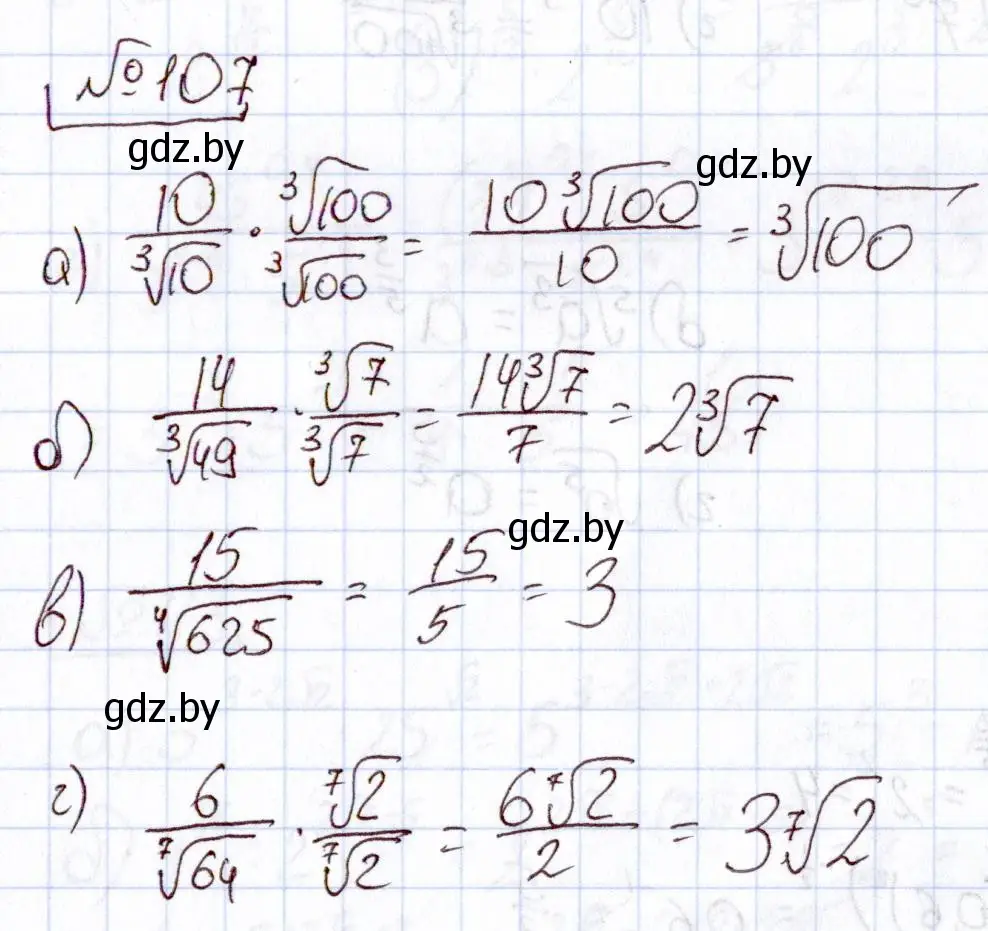 №107
gdz.by
gdz.by
а) 10/∛10 · ∛100/∛100 = 10∛100/10 = ∛100
б) 14/∛49 · ∛7/∛7 = 14∛7/7 = 2∛7
gdz.by
в) 15/∜625 = 15/5 = 3
gdz.by
г) 6/⁷√64 · ⁷√2/⁷√2 = 6⁷√2/2 = 3⁷√2